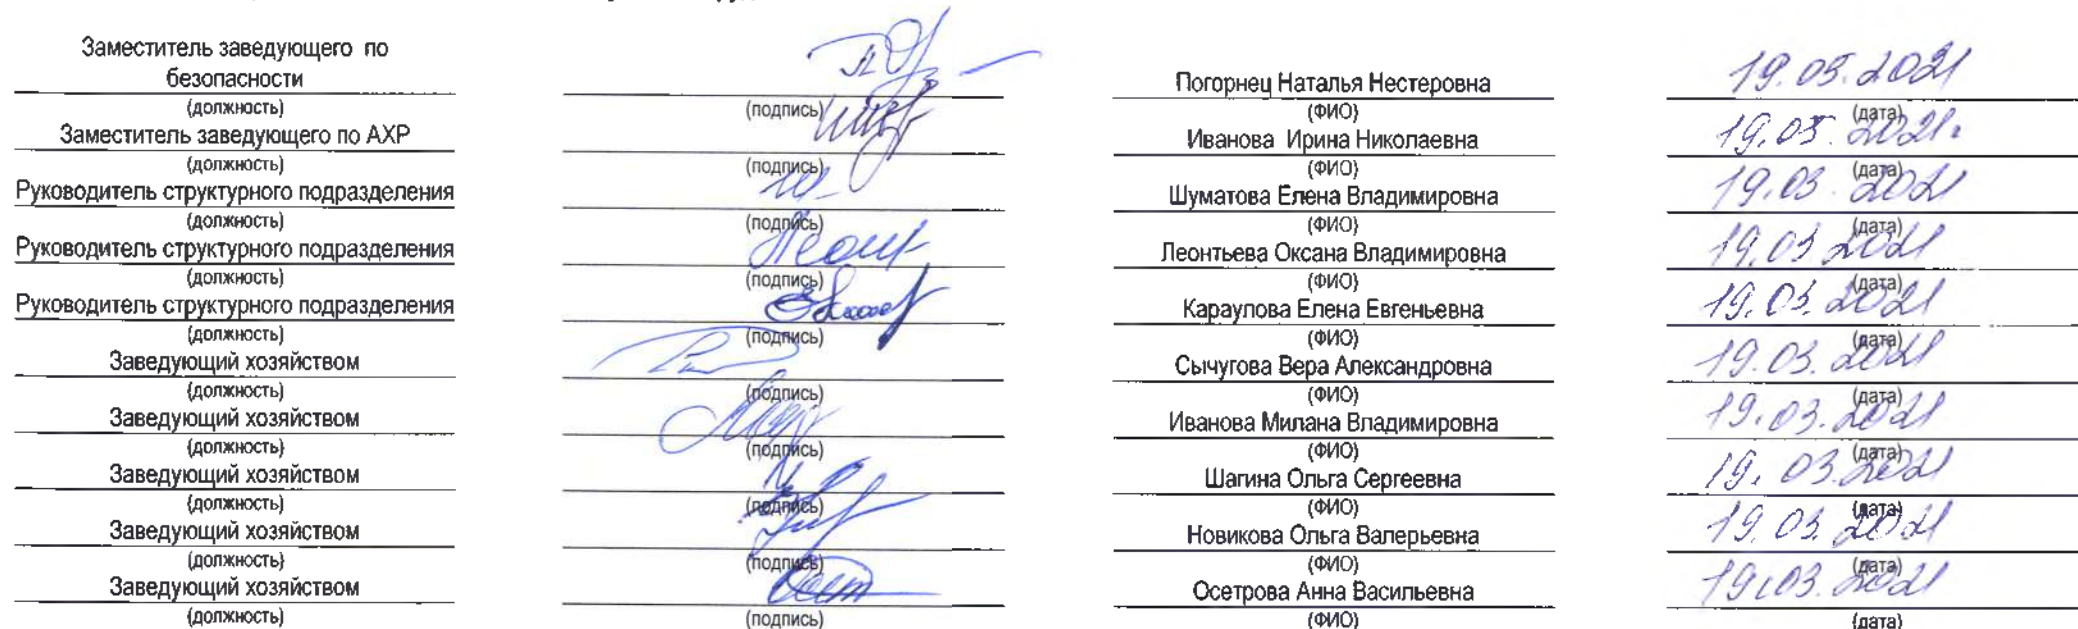 Заместитель заведующего по
безопасности Погорнец Наталья Нестеровна 19.03.2021
(должность) (подпись) (ФИО) (дата)
Заместитель заведующего по АХР Иванова Ирина Николаевна 19.03.2021.
(должность) (подпись) (ФИО) (дата)
Руководитель структурного подразделения Шуматова Елена Владимировна 19.03.2021
(должность) (подпись) (ФИО) (дата)
Руководитель структурного подразделения Леонтьева Оксана Владимировна 19.03.2021
(должность) (подпись) (ФИО) (дата)
Руководитель структурного подразделения Караулова Елена Евгеньевна 19.03.2021
(должность) (подпись) (ФИО) (дата)
Заведующий хозяйством Сычугова Вера Александровна 19.03.2021
(должность) (подпись) (ФИО) (дата)
Заведующий хозяйством Иванова Милана Владимировна 19.03.2021
(должность) (подпись) (ФИО) (дата)
Заведующий хозяйством Шагина Ольга Сергеевна 19.03.2021
(должность) (подпись) (ФИО) (дата)
Заведующий хозяйством Новикова Ольга Валерьевна 19.03.2021
(должность) (подпись) (ФИО) (дата)
Заведующий хозяйством Осетрова Анна Васильевна 19.03.2021
(должность) (подпись) (ФИО) (дата)